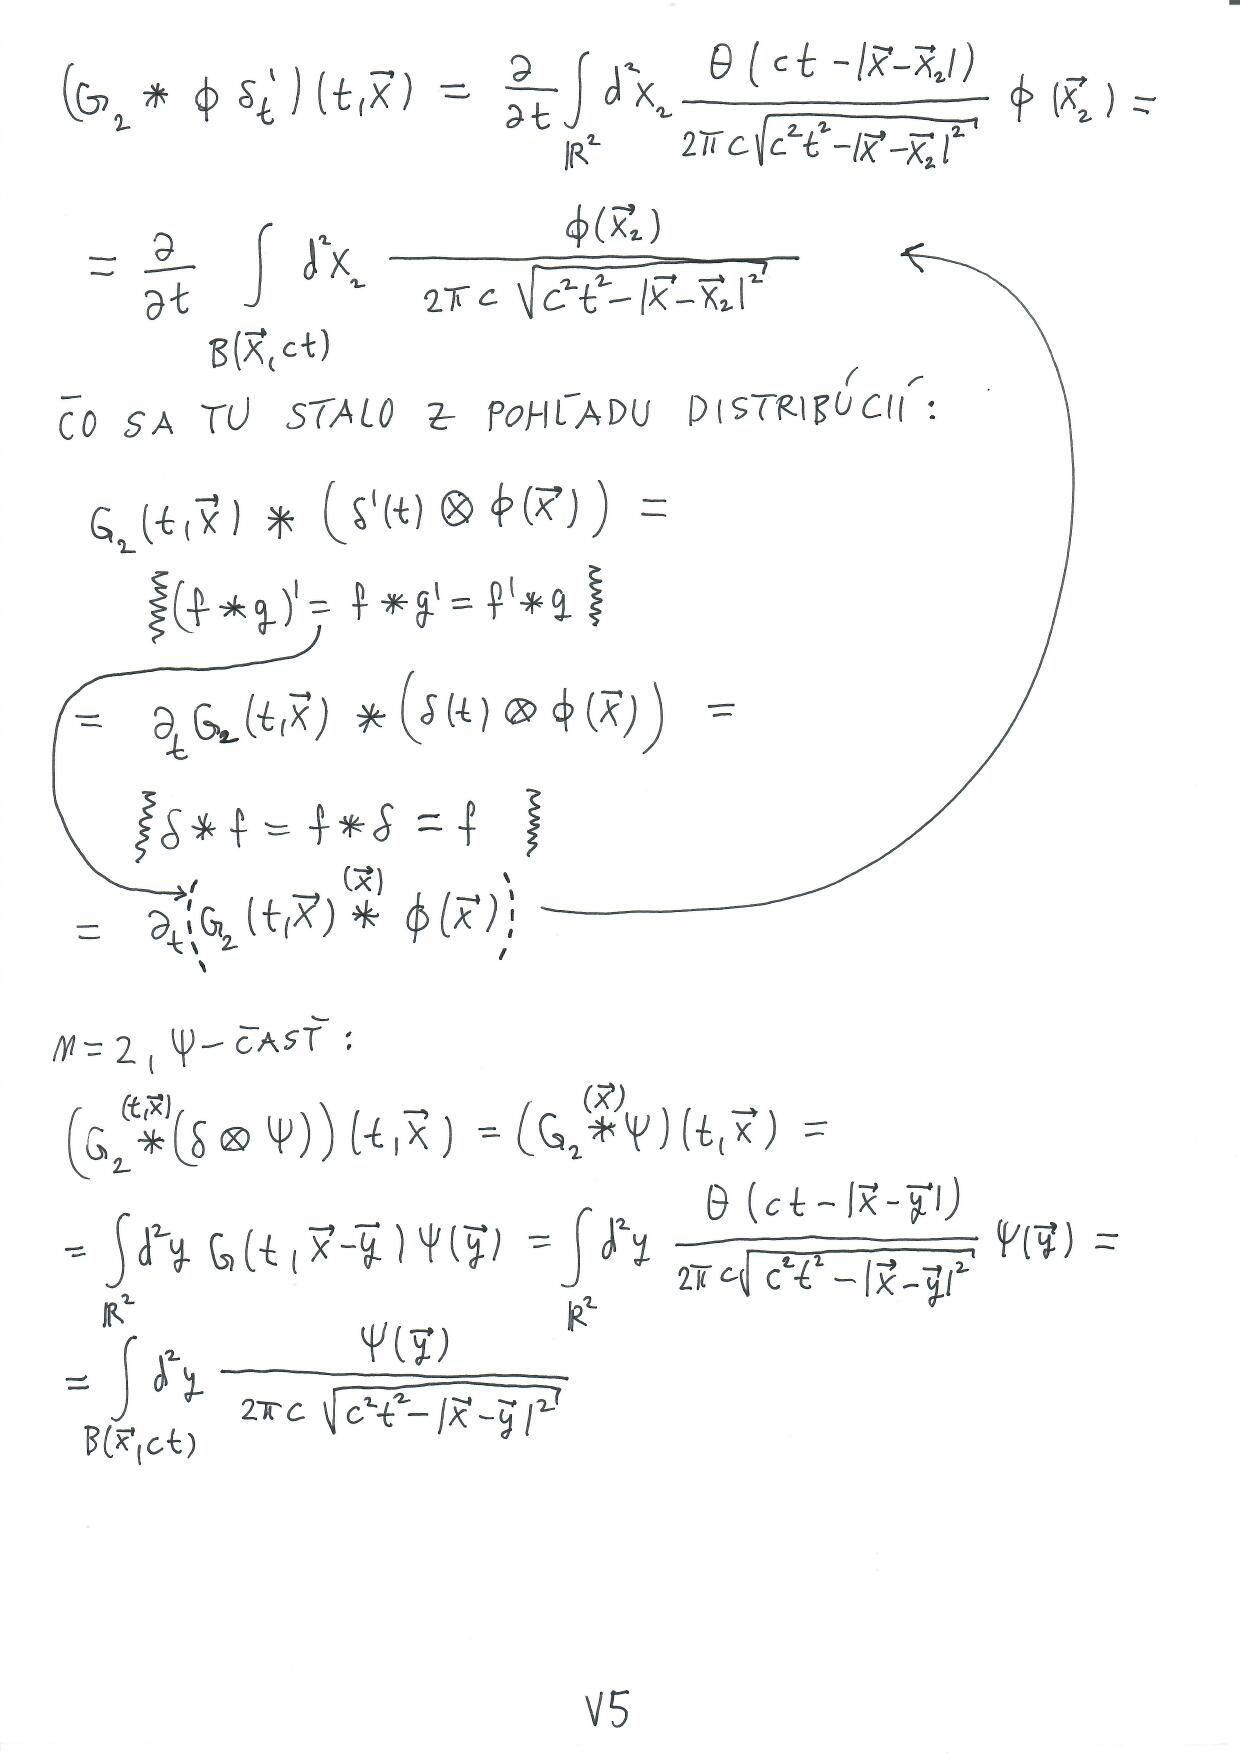 (G₂ * ϕ δₜ')(t,x⃗) = ∂/∂t ∫_{ℝ²} d²x₂ θ(ct-|x⃗-x⃗₂|) / (2πc√(c²t²-|x⃗-x⃗₂|²)) ϕ(x⃗₂) =
= ∂/∂t ∫_{B(x⃗,ct)} d²x₂ ϕ(x⃗₂) / (2πc√(c²t²-|x⃗-x⃗₂|²))
ČO SA TU STALO Z POHĽADU DISTRIBÚCIÍ:
G₂(t,x⃗) * (δ'(t) ⊗ ϕ(x⃗)) =
(f*g)' = f*g' = f'*g
= ∂ₜ G₂(t,x⃗) * (δ(t) ⊗ ϕ(x⃗)) =
δ*f = f*δ = f
= ∂ₜ G₂(t,x⃗) *^{(x⃗)} ϕ(x⃗)
n=2, Ψ-ČASŤ:
(G₂ *^{(t,x⃗)} (δ ⊗ Ψ))(t,x⃗) = (G₂ *^{(x⃗)} Ψ)(t,x⃗) =
= ∫_{ℝ²} d²y G(t,x⃗-y⃗) Ψ(y⃗) = ∫_{ℝ²} d²y θ(ct-|x⃗-y⃗|) / (2πc√(c²t²-|x⃗-y⃗|²)) Ψ(y⃗) =
= ∫_{B(x⃗,ct)} d²y Ψ(y⃗) / (2πc√(c²t²-|x⃗-y⃗|²))
V5